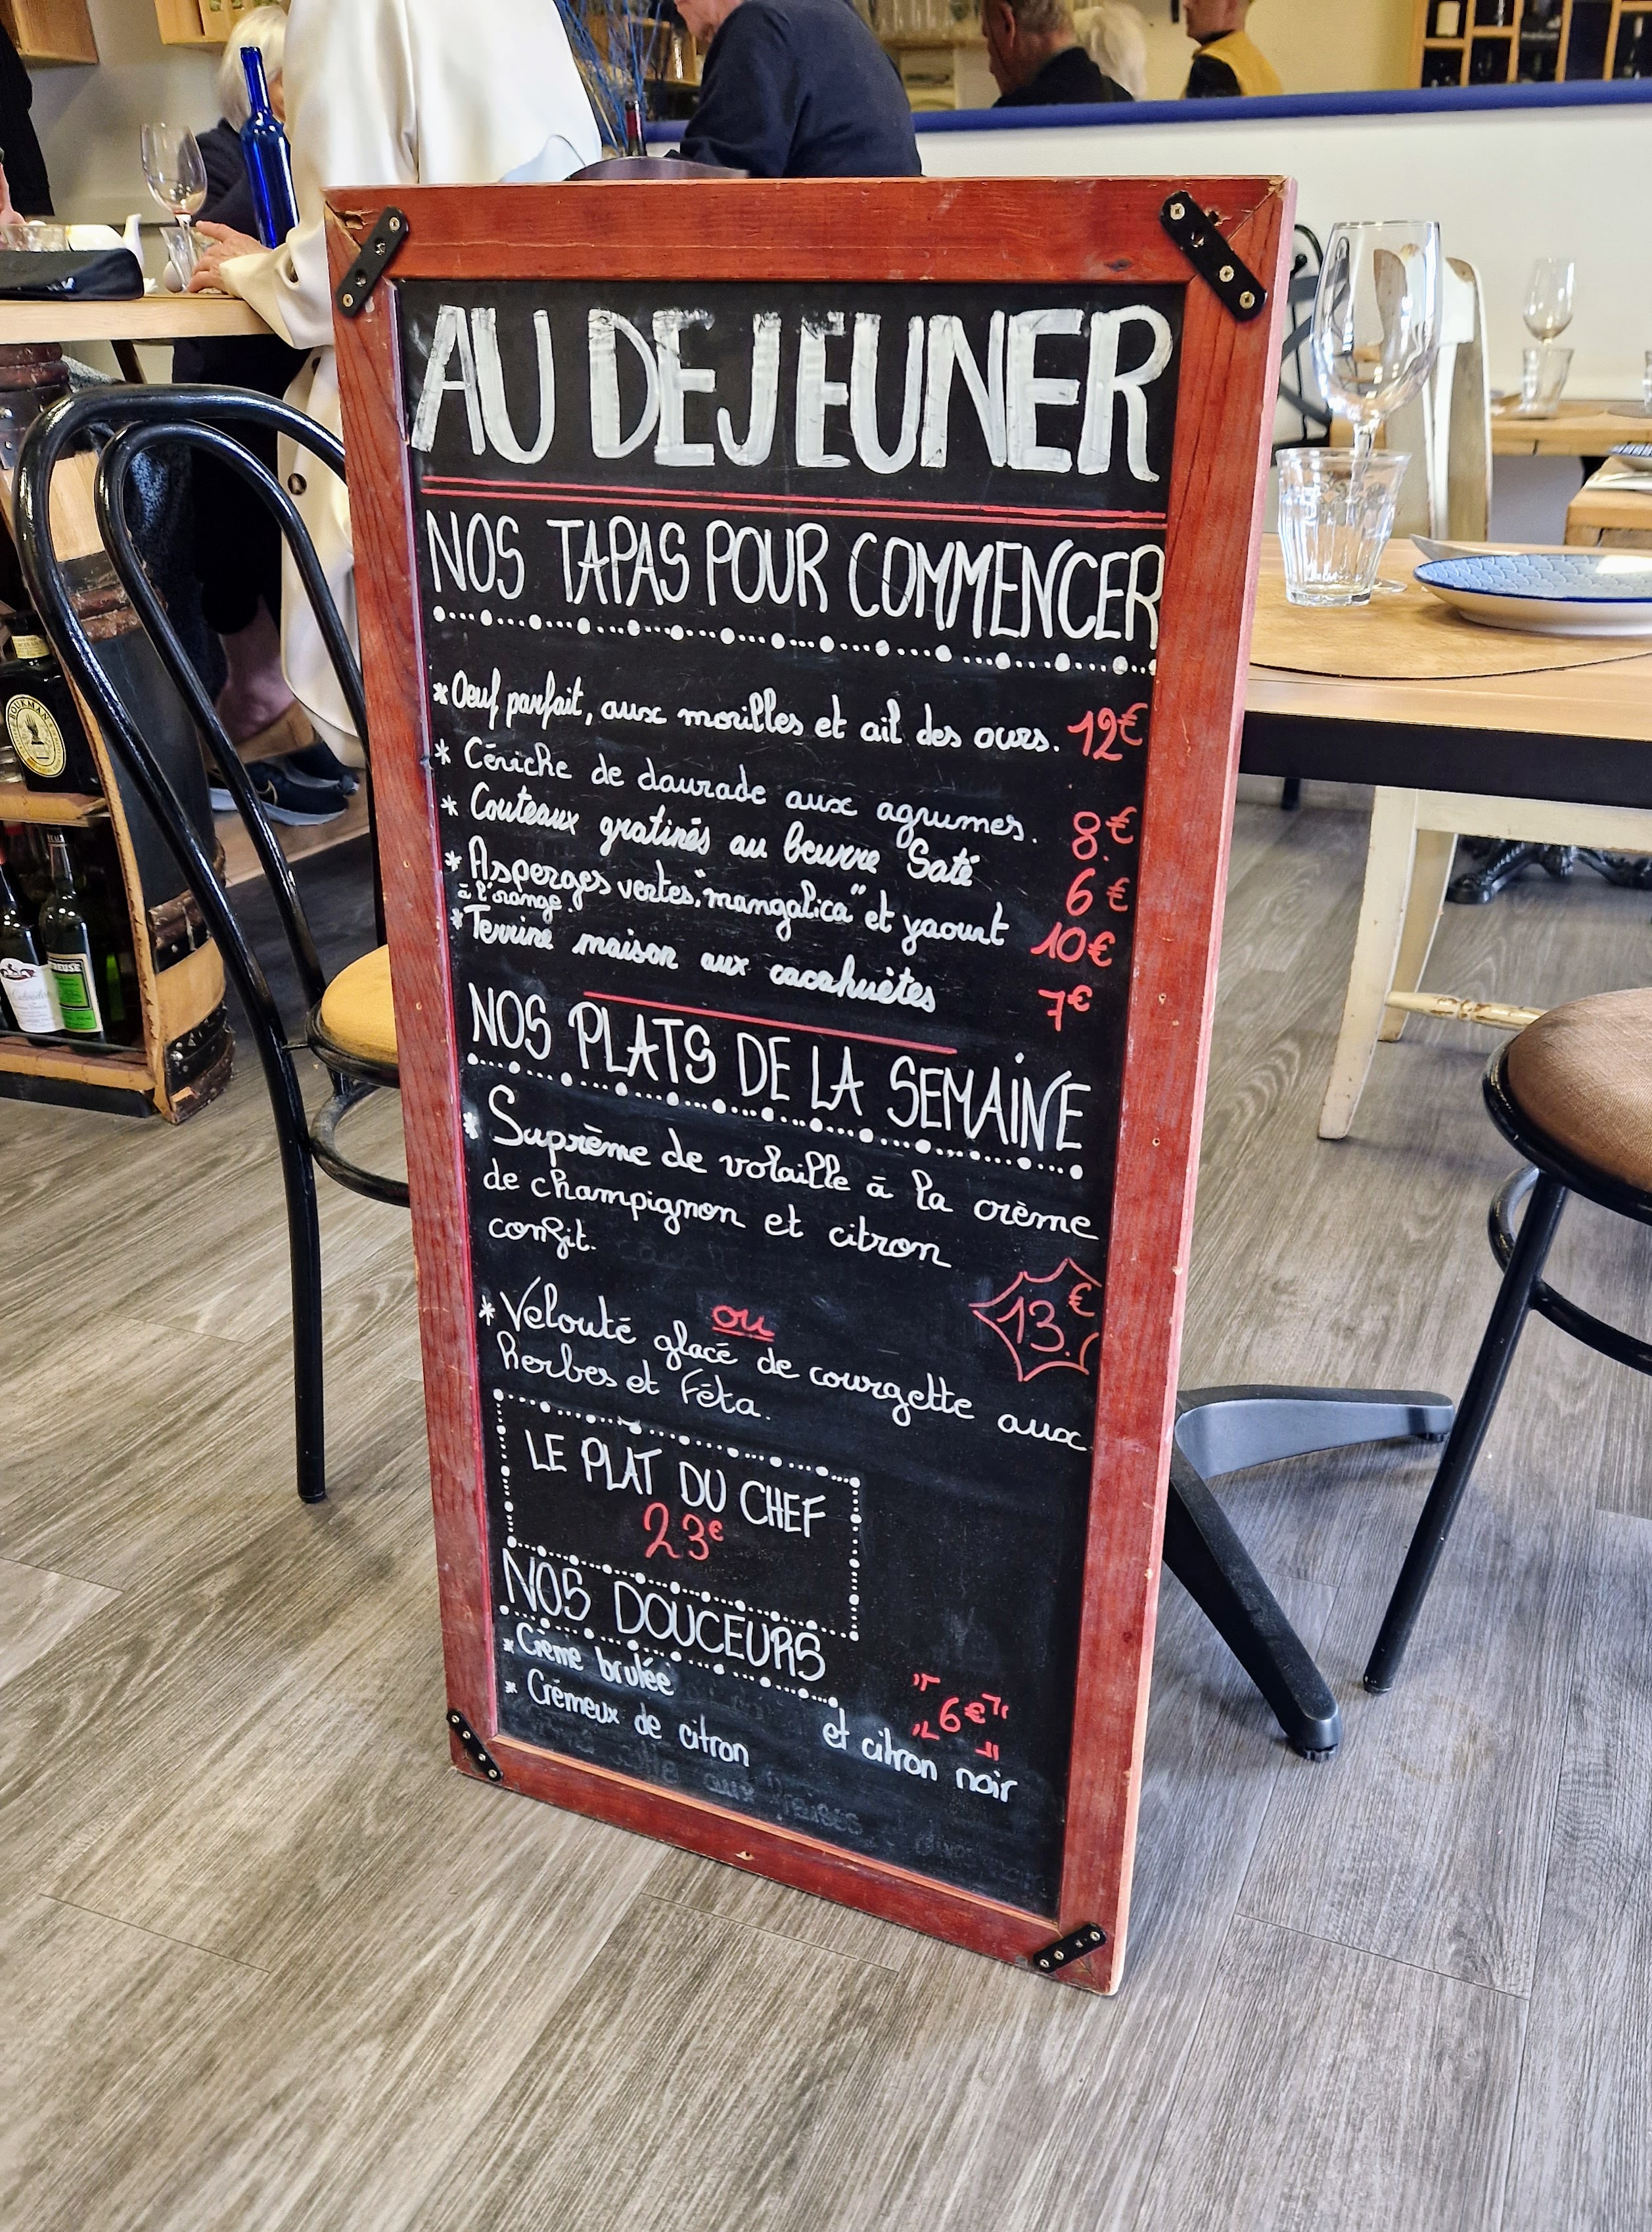 AU DEJEUNER
NOS TAPAS POUR COMMENCER
* Oeuf parfait, aux morilles et ail des ours. 12€
* Céviche de daurade aux agrumes. 8.€
* Couteaux gratinés au beurre Saté 6€
* Asperges vertes, "mangalica" et yaourt 10€
à l'orange.
* Terrine maison aux cacahuètes 7€
NOS PLATS DE LA SEMAINE
* Suprème de volaille à la crème
de champignon et citron
confit.
13.€
ou
* Velouté glacé de courgette aux
herbes et Féta.
LE PLAT DU CHEF
23€
NOS DOUCEURS
* Crème brulée
6€
* Crémeux de citron et citron noir